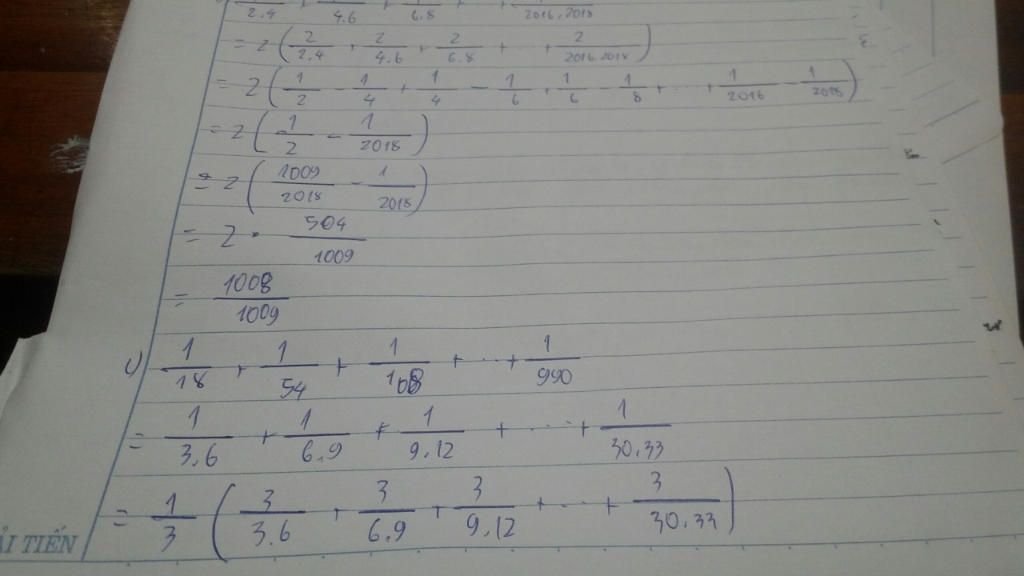 2.4 4.6 6.8 2016.2018
= 2 ( 2/2.4 + 2/4.6 + 2/6.8 + ... + 2/2016.2018 )
= 2 ( 1/2 - 1/4 + 1/4 - 1/6 + 1/6 - 1/8 + ... + 1/2016 - 1/2018 )
= 2 ( 1/2 - 1/2018 )
= 2 ( 1009/2018 - 1/2018 )
= 2 . 504/1009
= 1008/1009
c) 1/18 + 1/54 + 1/108 + ... + 1/990
= 1/3.6 + 1/6.9 + 1/9.12 + ... + 1/30.33
= 1/3 ( 3/3.6 + 3/6.9 + 3/9.12 + ... + 3/30.33 )
ẢI TIẾN